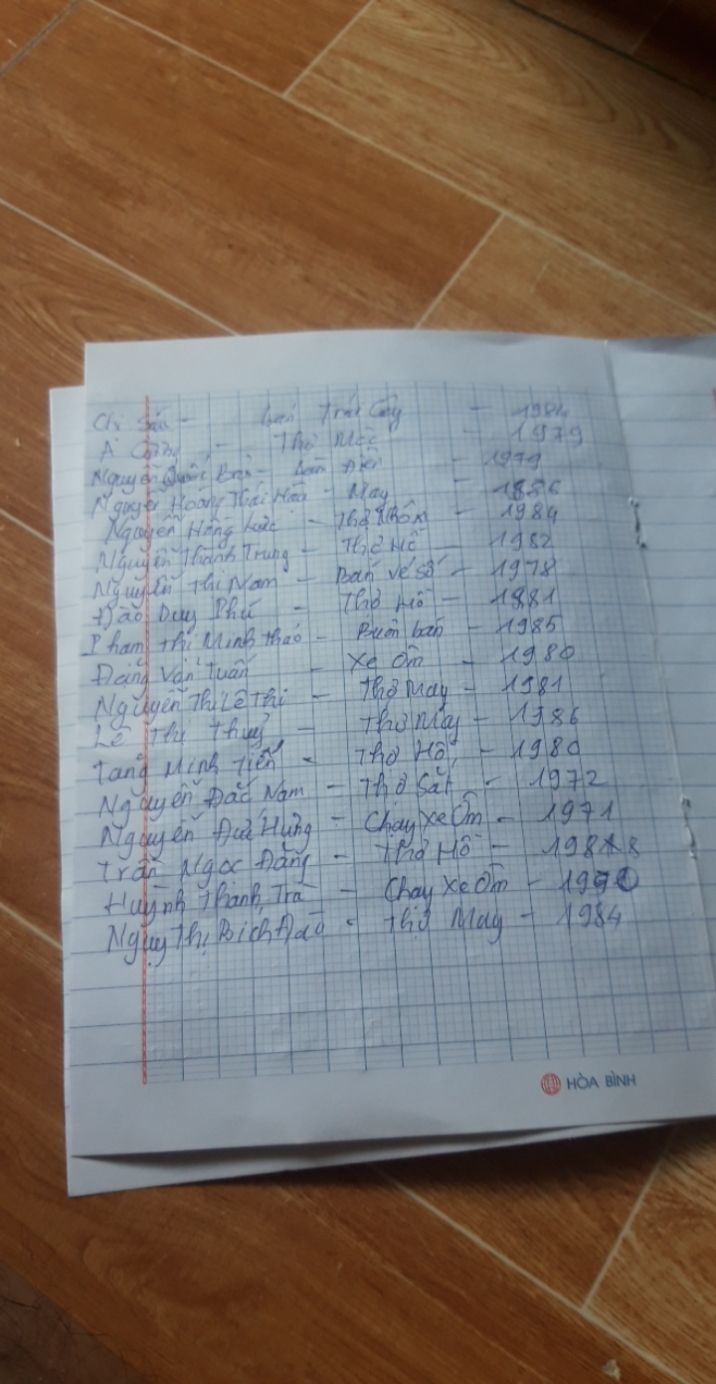 Chị Sáu - bán Trái Cây - 1984
A - Thợ Mộc - 1979
Nguyễn Quốc - Điện - 1979
Nguyễn Hoàng Thái - May - 1986
Nguyễn Hồng - Thợ Nhôm - 1984
Nguyễn Thành Trung - Thợ Hồ - 1982
Nguyễn Thị Nam - Bán vé số - 1978
Đào Duy Phú - Thợ Hồ - 1981
Phạm Thị Minh Thảo - Buôn bán - 1985
Đặng Văn Tuấn - Xe Ôm - 1980
Nguyễn Thị Lê Thi - Thợ May - 1981
Lê Thị Thuỷ - Thợ May - 1986
Tăng Minh Tiến - Thợ Hồ - 1980
Nguyễn Đắc Nam - Thợ Sắt - 1972
Nguyễn Đức Hưng - Chạy Xe Ôm - 1971
Trần Ngọc Đăng - Thợ Hồ - 198 8
Huỳnh Thanh Trà - Chạy Xe Ôm -
Nguy Thị Bích Đào - Thợ May - 1984
HÒA BÌNH